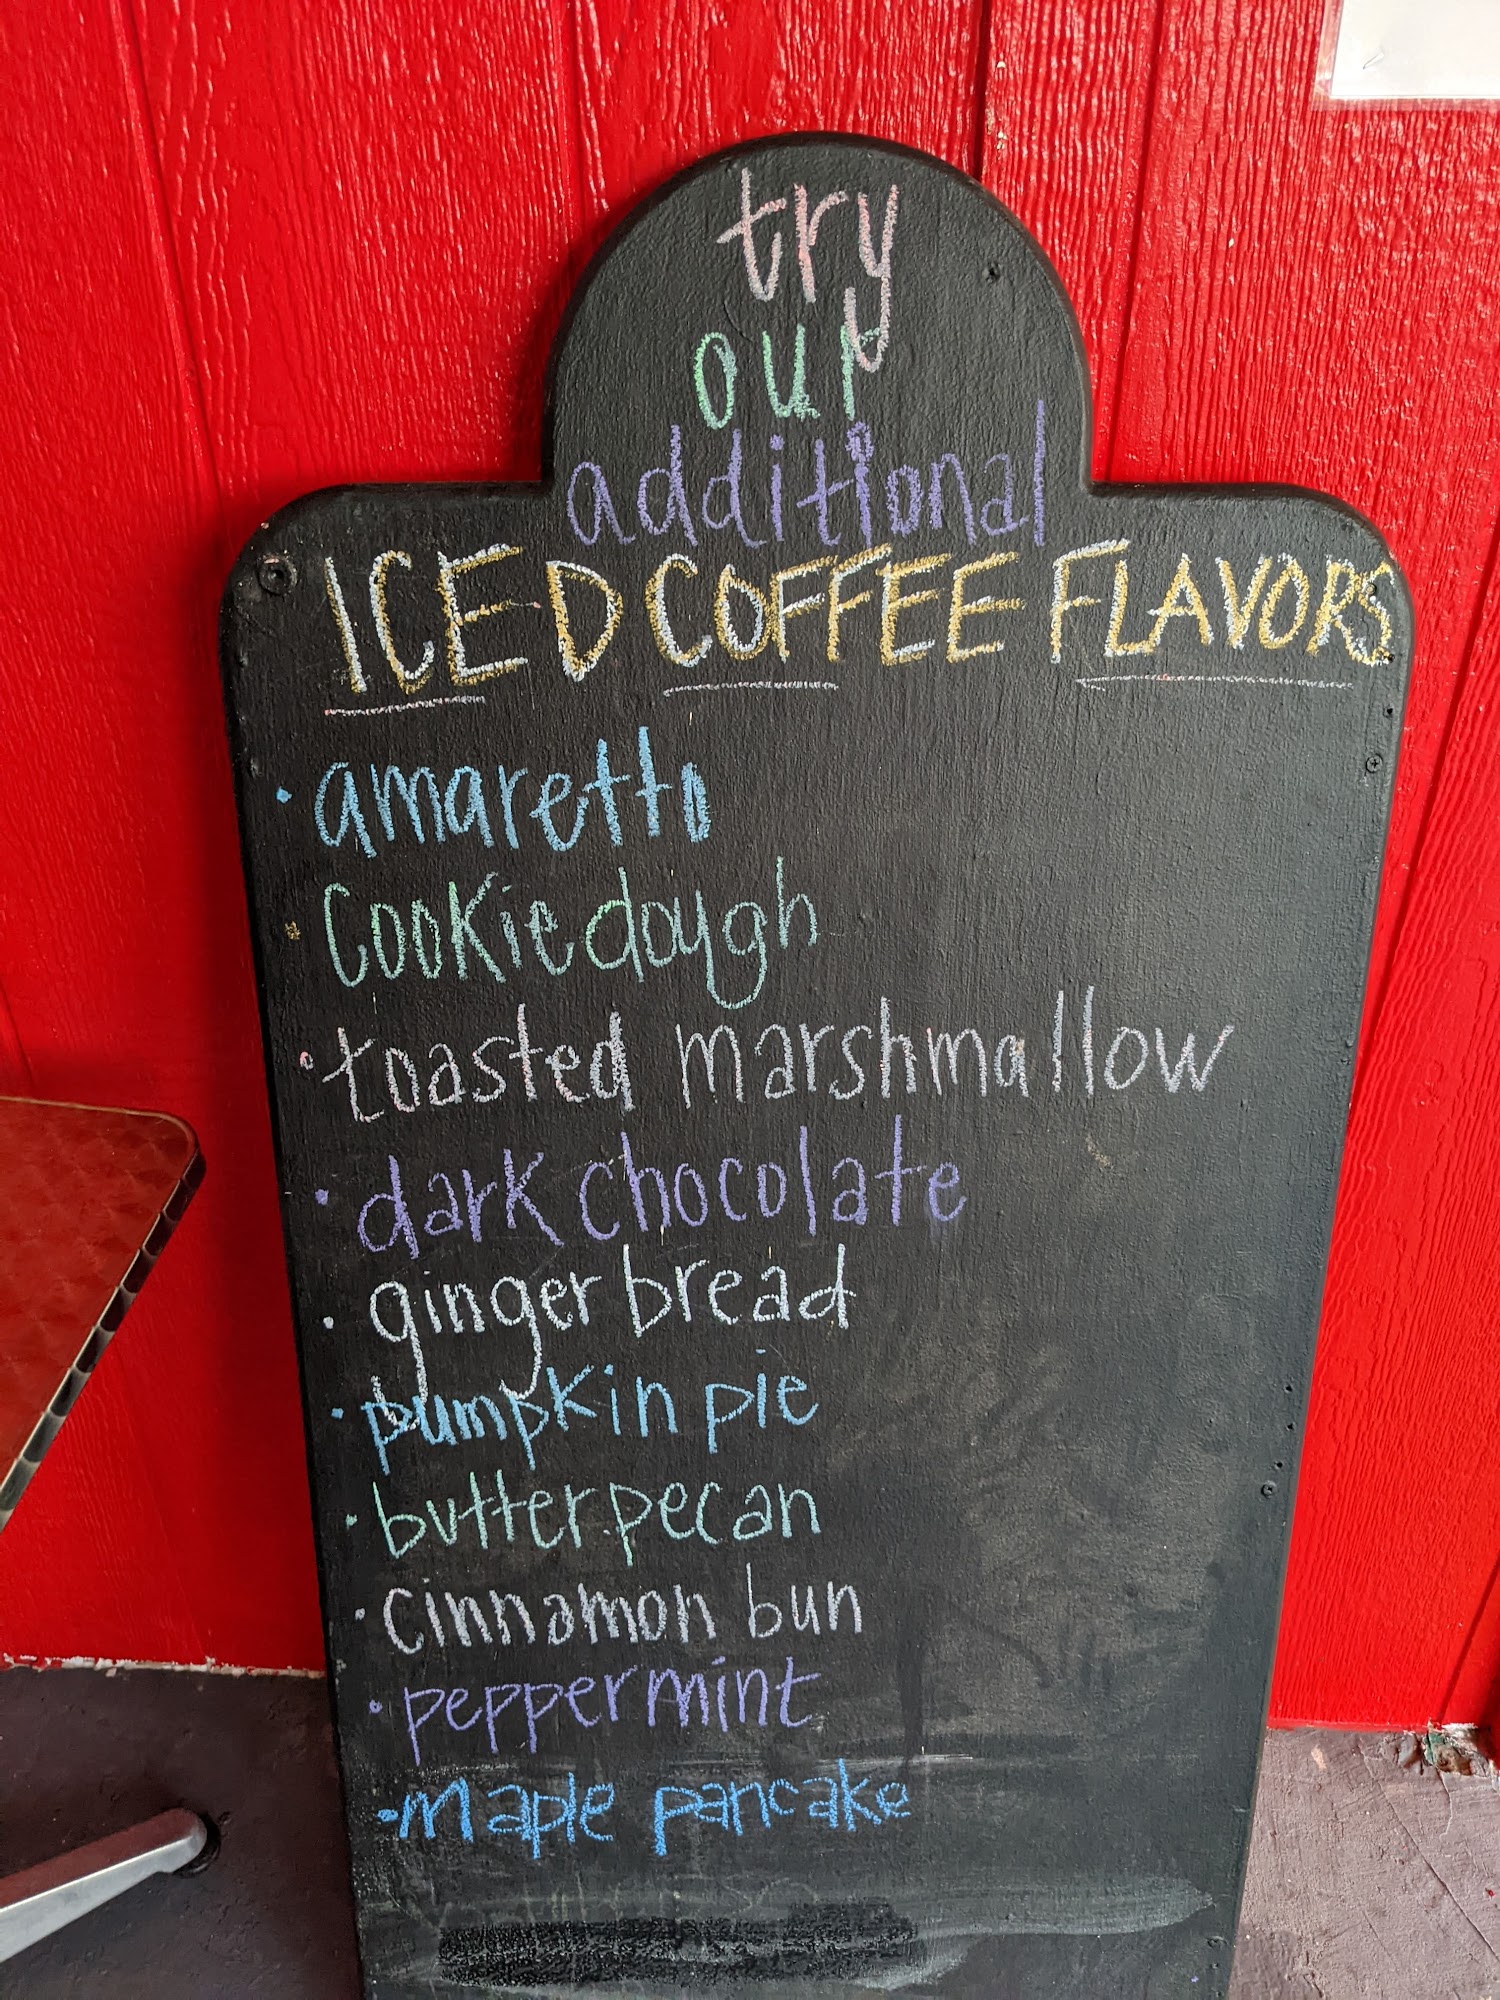 try
our
additional
ICED COFFEE FLAVORS
• amaretto
• Cookie dough
• toasted marshmallow
• dark chocolate
• ginger bread
• pumpkin pie
• butter pecan
• cinnamon bun
• peppermint
• maple pancake